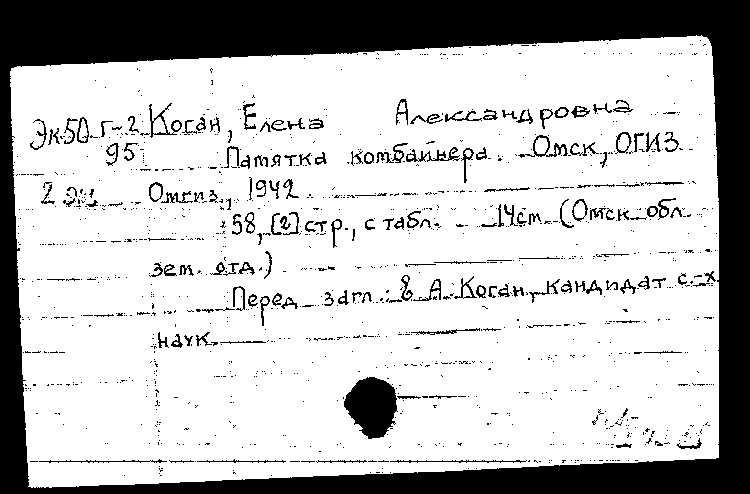 Эк50 Г-2 Коган, Елена Александровна
95 Памятка комбайнера. Омск, ОГИЗ
2 экз Омгиз, 1942.
58, [2] стр., с табл. 14см. (Омск. обл.
зем. отд.)
Перед загл.: Е. А. Коган, кандидат с-х
наук.